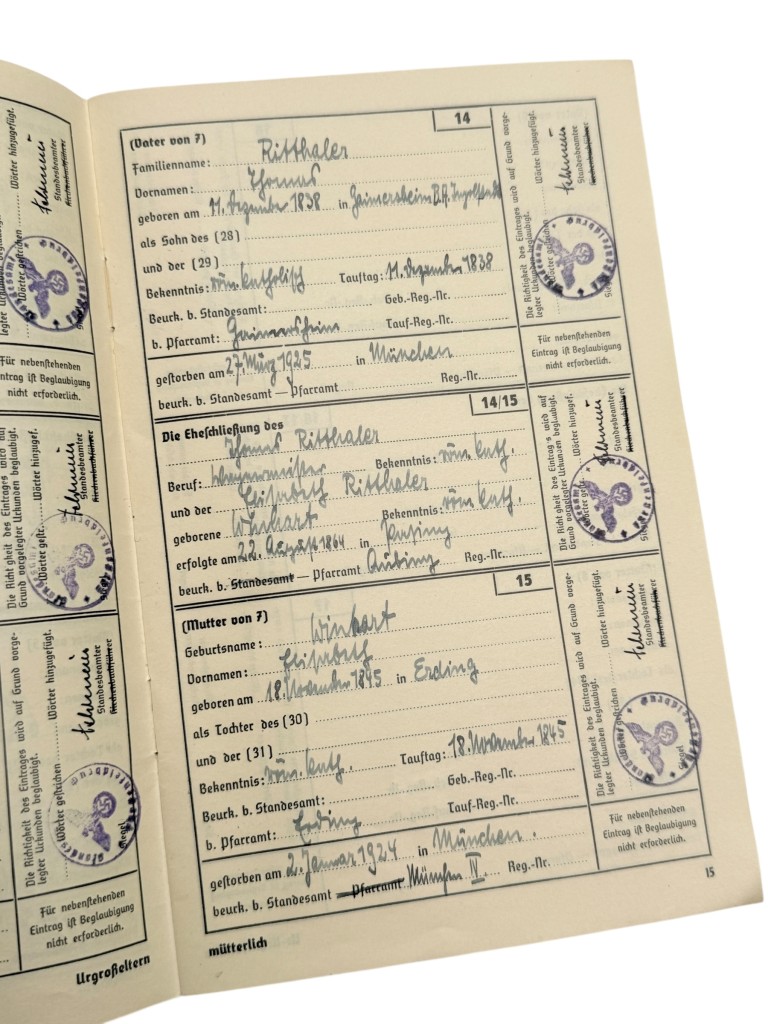 (Vater von 7) 14
Familienname: Ritthaler
Vornamen: Thomas
geboren am 11. Dezember 1838 in Gaimersheim B.A. Ingolstadt
als Sohn des (28)
und der (29)
Bekenntnis: röm. katholisch Tauftag: 11. Dezember 1838
Beurk. b. Standesamt: Geb.-Reg.-Nr.
b. Pfarramt: Gaimersheim Tauf-Reg.-Nr.
gestorben am 27. März 1925 in München
beurk. b. Standesamt — Pfarramt Reg.-Nr.
14/15
Die Eheschließung des
Thomas Ritthaler
Beruf: Bekenntnis: röm. kath.
und der Elisabeth Ritthaler
geborene Winhart Bekenntnis: röm. kath.
erfolgte am 22. August 1864 in Pasing
beurk. b. Standesamt — Pfarramt Aubing Reg.-Nr.
15
(Mutter von 7)
Geburtsname: Winhart
Vornamen: Elisabeth
geboren am 18. November 1845 in Erding
als Tochter des (30)
und der (31)
Bekenntnis: röm. kath. Tauftag: 18. November 1845
Beurk. b. Standesamt: Geb.-Reg.-Nr.
b. Pfarramt: Erding Tauf-Reg.-Nr.
gestorben am 2. Januar 1924 in München.
beurk. b. Standesamt — Pfarramt München IV Reg.-Nr.
mütterlich
15
Die Richtigkeit des Eintrages wird auf Grund vorge-
legter Urkunden beglaubigt.
Wörter gestrichen Wörter hinzugefügt.
Standesbeamter
Kirchenbuchführer
Siegel
Für nebenstehenden
Eintrag ist Beglaubigung
nicht erforderlich.
Die Richtigkeit des Eintrages wird auf
Grund vorgelegter Urkunden beglaubigt.
Wörter gestr. Wörter hinzugef.
Standesbeamter
Kirchenbuchführer
Die Richtigkeit des Eintrages wird auf Grund vorge-
legter Urkunden beglaubigt.
Wörter gestrichen Wörter hinzugefügt.
Standesbeamter
Kirchenbuchführer
Siegel
Für nebenstehenden
Eintrag ist Beglaubigung
nicht erforderlich.
Wörter gestrichen Wörter hinzugefügt.
Standesbeamter
Kirchenbuchführer
Für nebenstehenden
Eintrag ist Beglaubigung
nicht erforderlich.
Die Richtigkeit des Eintrages wird auf
Grund vorgelegter Urkunden beglaubigt.
Wörter gestr. Wörter hinzugef.
Standesbeamter
Kirchenbuchführer
Die Richtigkeit des Eintrages wird auf Grund vorge-
legter Urkunden beglaubigt.
Wörter gestrichen Wörter hinzugefügt.
Standesbeamter
Kirchenbuchführer
Siegel
Für nebenstehenden
Eintrag ist Beglaubigung
nicht erforderlich.
Urgroßeltern